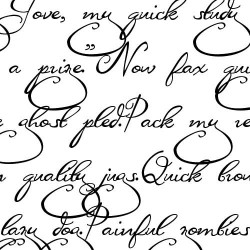 Love, my quick study
" 
a prize. "Now fax qui
e ghost pled. Pack my re
n quality jugs. Quick brow
lazy dog. Painful zombies